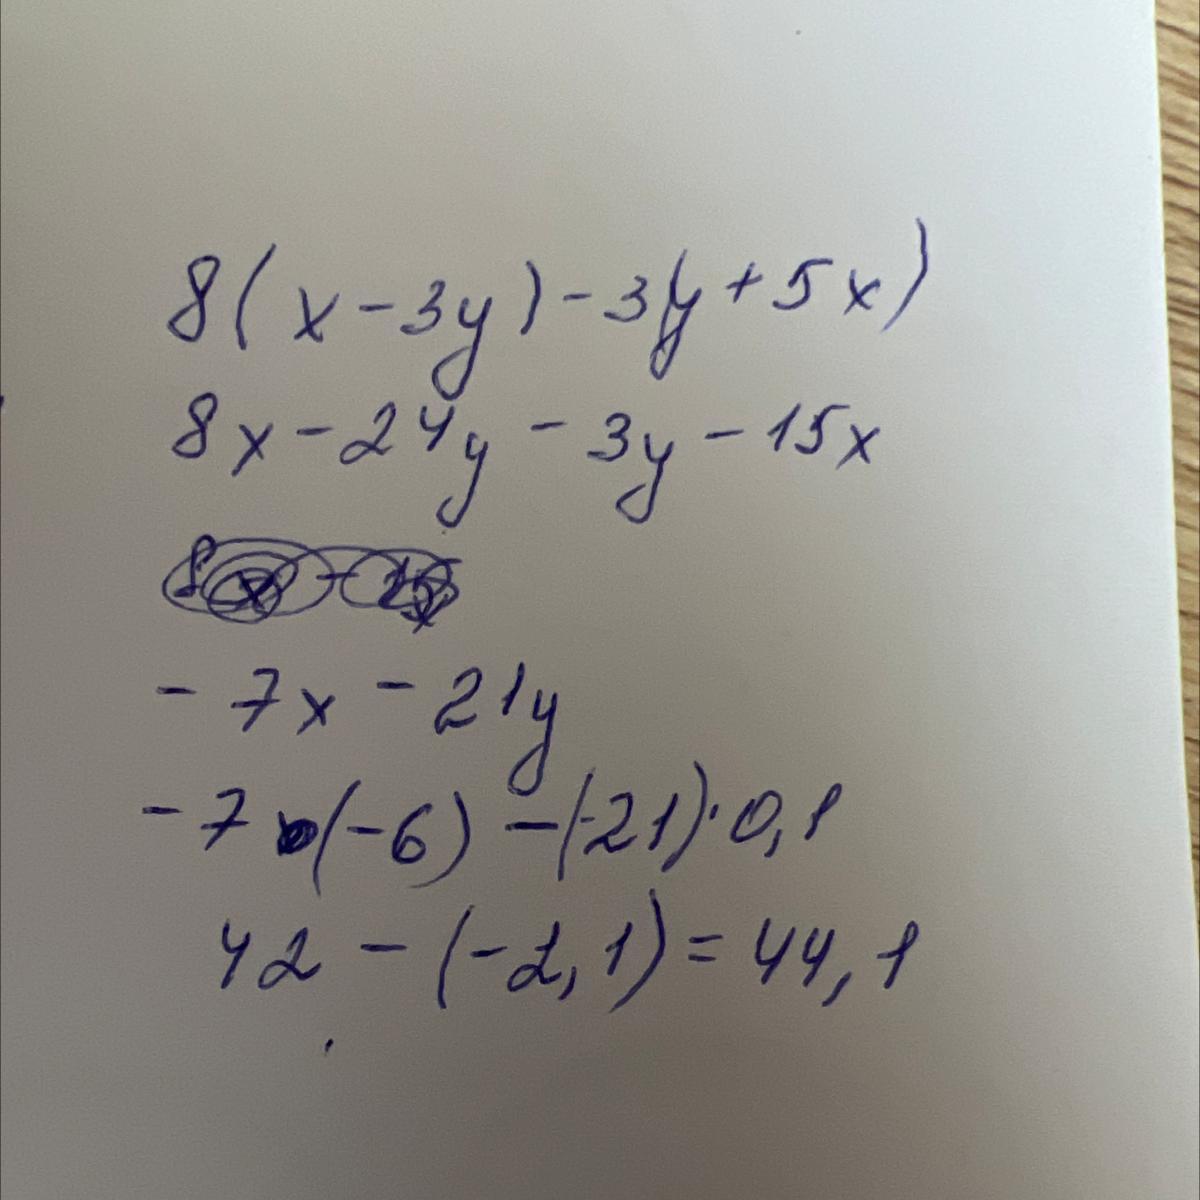 8(x-3y)-3(y+5x)
8x-24y-3y-15x
-7x-21y
-7·(-6)-(-21)·0,1
42-(-2,1)=44,1